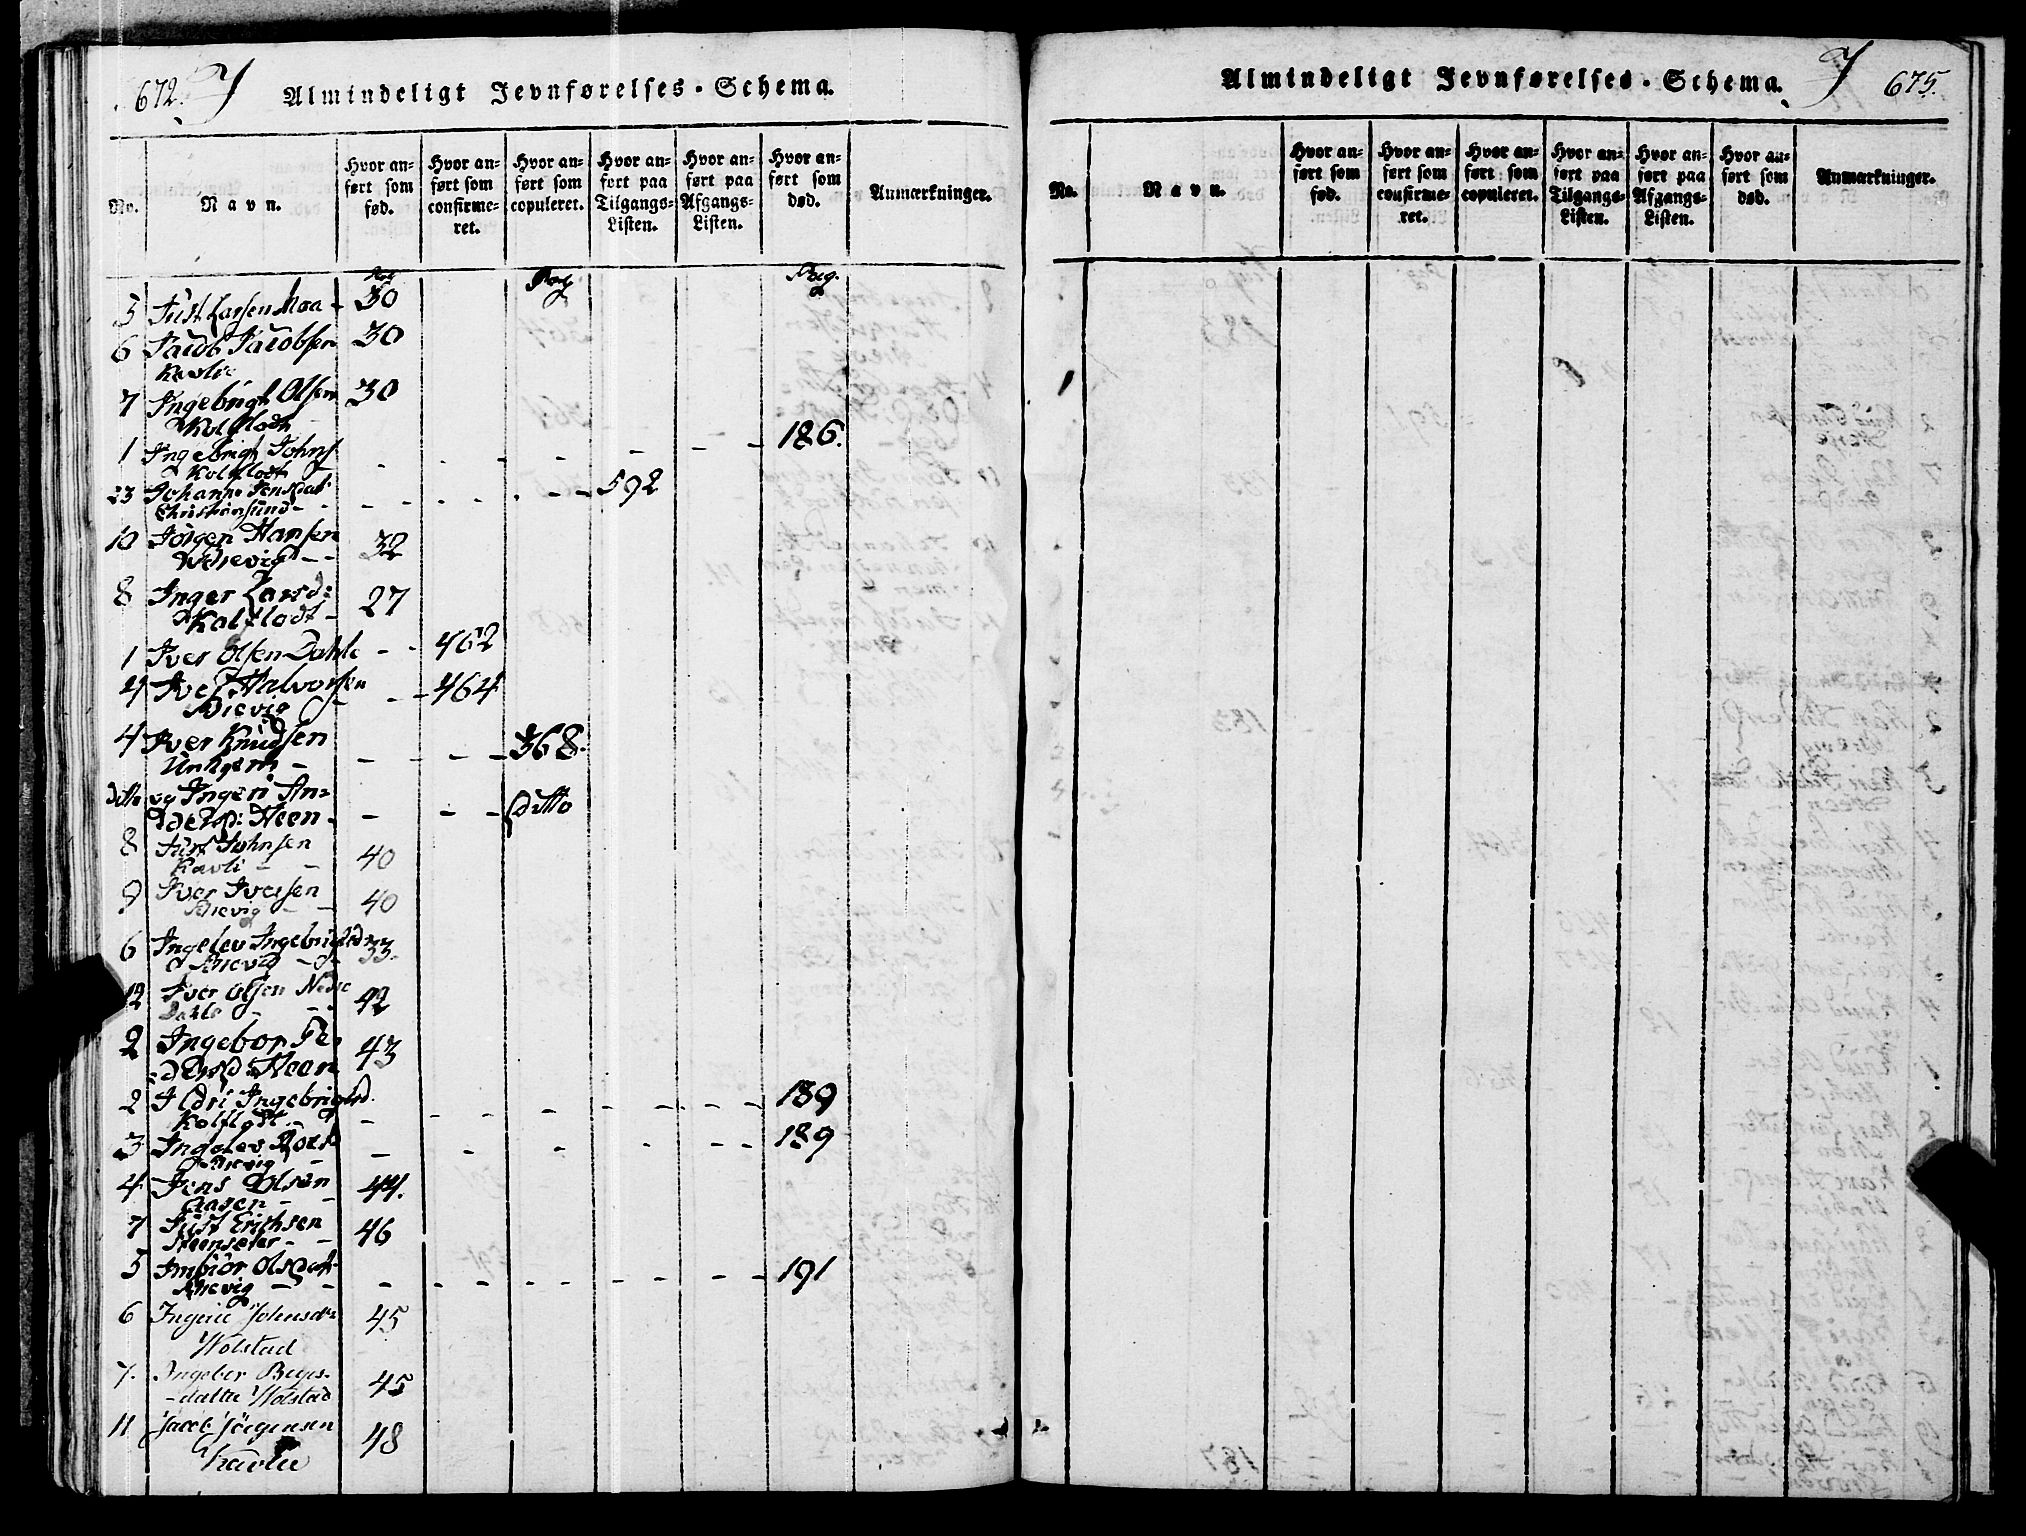 672. J Almindeligt Jevnførelses-Schema.
No.
Navn.
Hvor an-
ført som
fød.
Hvor an-
ført som
confirme-
ret.
Hvor an-
ført som
copuleret.
Hvor an-
ført paa
Tilgangs-
Listen.
Hvor an-
ført paa
Afgangs-
Listen.
Hvor an-
ført som
død.
Anmærkninger.
Pag Pag Pag.
5 Just Larsen Maa - 30
6 Jacob Jacobsen 30
Kavlie
7 Ingebrigt Olsen 30
Kolflodt
1 Ingebrigt Johns - - - - - - 186.
Kolflodt
23 Johanne Jensdat - - - - 592
Christiansund
10 Jørgen Hansen 32
Brevig
8 Inger Larsd: 27
Kolflodt
1 Iver Olsen Dahle - - 462
4 Iver Halvorsen - - 464
Brevig
4 Iver Knudsen - - - 368.
Unhjem
ditto og Ingeri An=
dersd: Heen - - - ditto
8 Just Johnsen
Kavli - - 40
9 Iver Iversen
Brevig - - 40
6 Ingelev Ingebrigtsd: 33.
Brevig
12 Iver Olsen Nedre 42
Dahle
2 Ingebor Pe- 43
dersd: Heen
2 Ildri Ingebrigtsd. - - - - - - 189
Kolflodt
3 Ingelev - - - - - 189
Brevig
4 Jens Olsen 44.
Aasen - -
7 Just Erichsen 46
Steensæter - -
5 Imbiør Olsdat - - - - - - 191
Brevig
6 Ingerie Johnsdr 45
Wolstad
7. Ingeber
-datter Wolstad 45
11 Jacob Jörgensen 48
Kavlie
Almindeligt Jevnførelses-Schema. J 675.
No.
Navn.
Hvor an-
ført som
fød.
Hvor an-
ført som
confirme-
ret.
Hvor an-
ført som
copuleret.
Hvor an-
ført paa
Tilgangs-
Listen.
Hvor an-
ført paa
Afgangs-
Listen.
Hvor an-
ført som
død.
Anmærkninger.